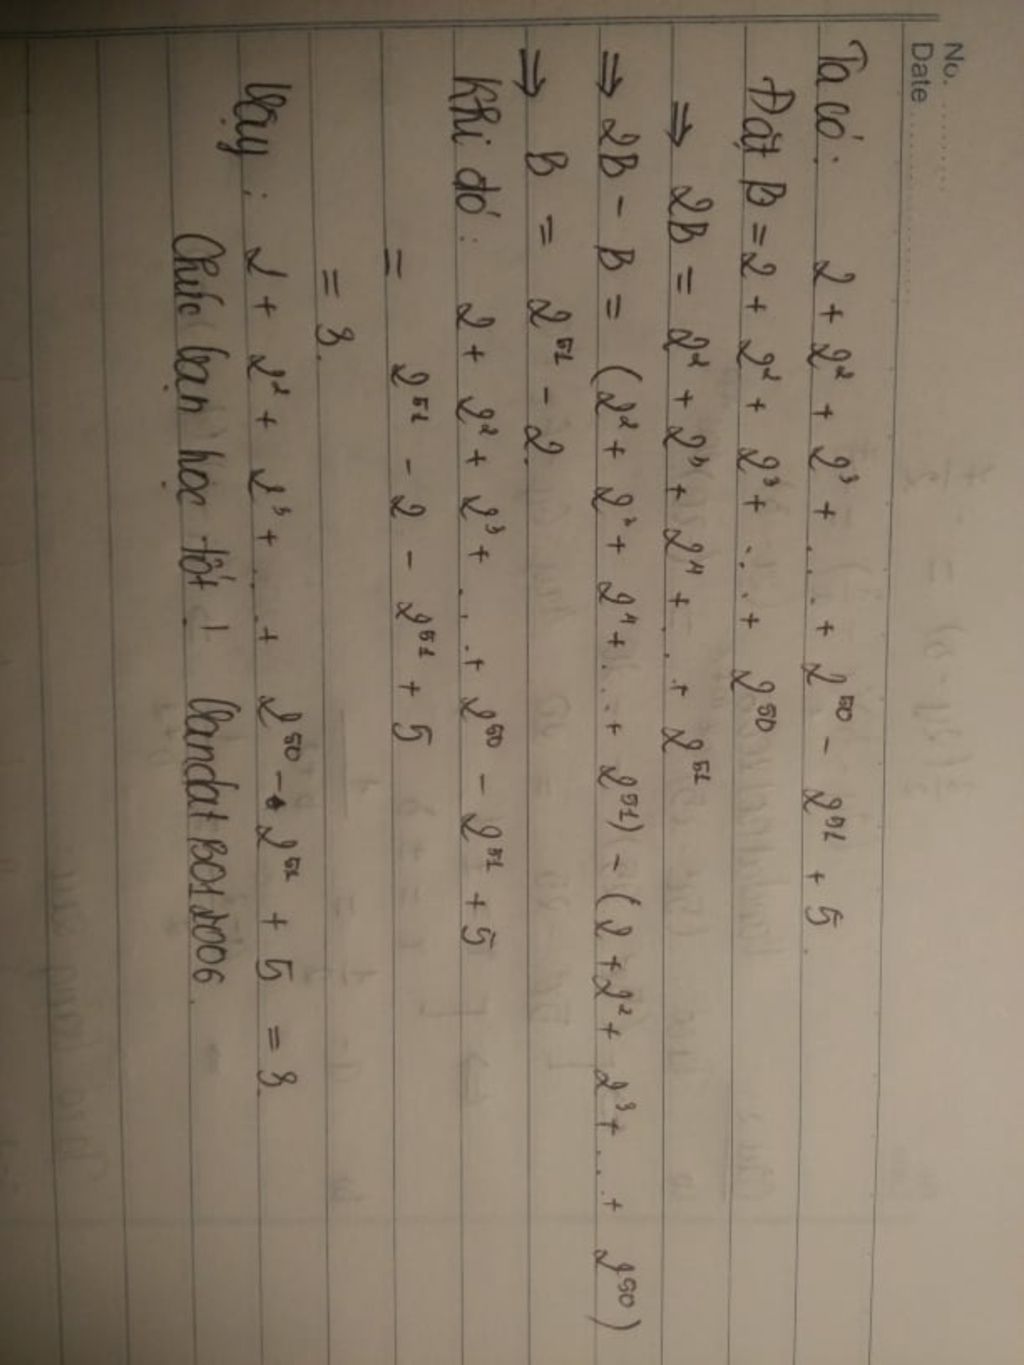 No. ..........
Date ....................
Ta có: 2 + 2² + 2³ + .... + 2⁵⁰ - 2⁵¹ + 5.
Đặt B = 2 + 2² + 2³ + .... + 2⁵⁰
⇒ 2B = 2² + 2³ + 2⁴ + ... + 2⁵¹
⇒ 2B - B = (2² + 2³ + 2⁴ + ... + 2⁵¹) - (2 + 2² + 2³ + ... + 2⁵⁰)
⇒ B = 2⁵¹ - 2.
Khi đó: 2 + 2² + 2³ + .... + 2⁵⁰ - 2⁵¹ + 5
= 2⁵¹ - 2 - 2⁵¹ + 5
= 3.
Vậy: 2 + 2² + 2³ + .... + 2⁵⁰ - 2⁵¹ + 5 = 3.
Chúc bạn học tốt! VandatBO12006.